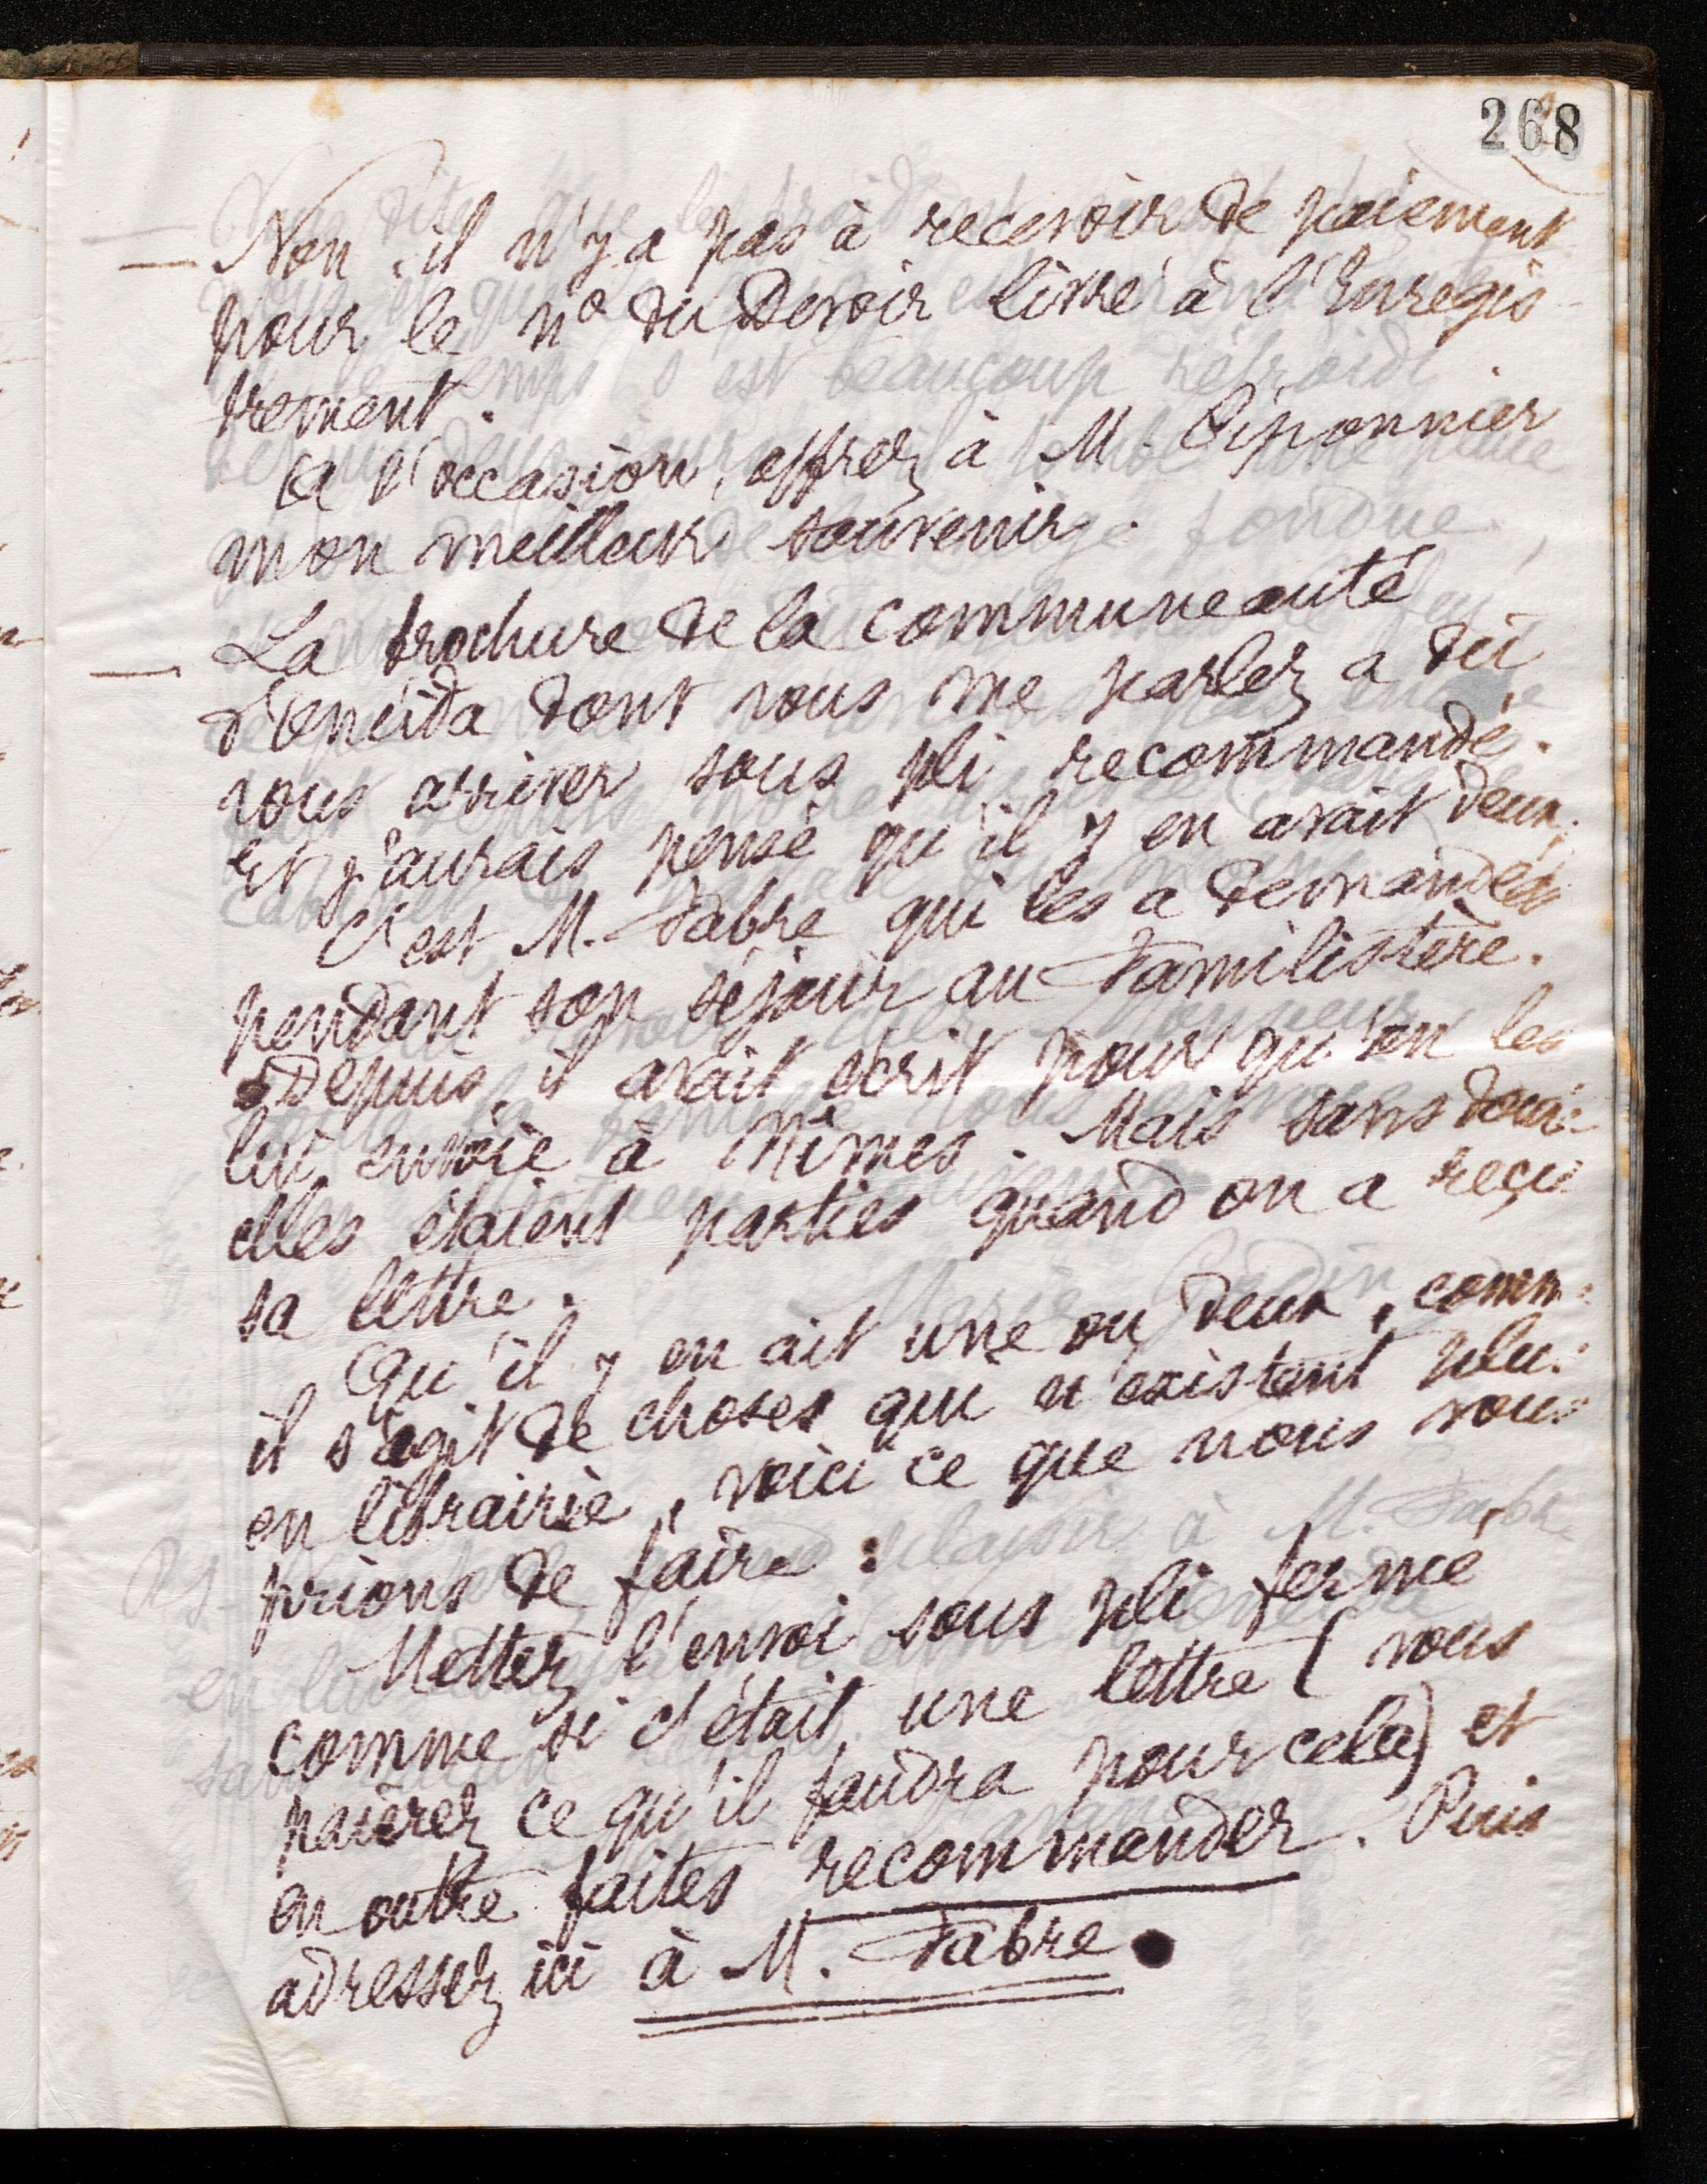 268
— Non, il n'y a pas à recevoir de paiement
pour le nº du Devoir livré à l'Enregis
trement.
A l'occasion, offrez à M. Piponnier
mon meilleur souvenir.
— La brochure de la communeauté
d'Onéida dont vous me parlez a dû
vous arriver sous pli recommandé.
Et j'aurais pensé qu'il y en avait deux.
C'est M. Fabre qui les a demandées
pendant son séjour au Familistère.
Depuis, il avait écrit pour qu'on les
lui envoie à Nîmes. Mais sans dou
elles étaient parties quand on a reçu
sa lettre.
Qu'il y en ait une ou deux, comm
il s'agit de choses qui n'existent plu
en librairie, voici ce que nous vou
prions de faire :
Mettez l'envoi sous pli fermé
comme si c'était une lettre (vous
paierez ce qu'il faudra pour cela) et
en outre faites recommander. Puis
adressez ici à M. Fabre.